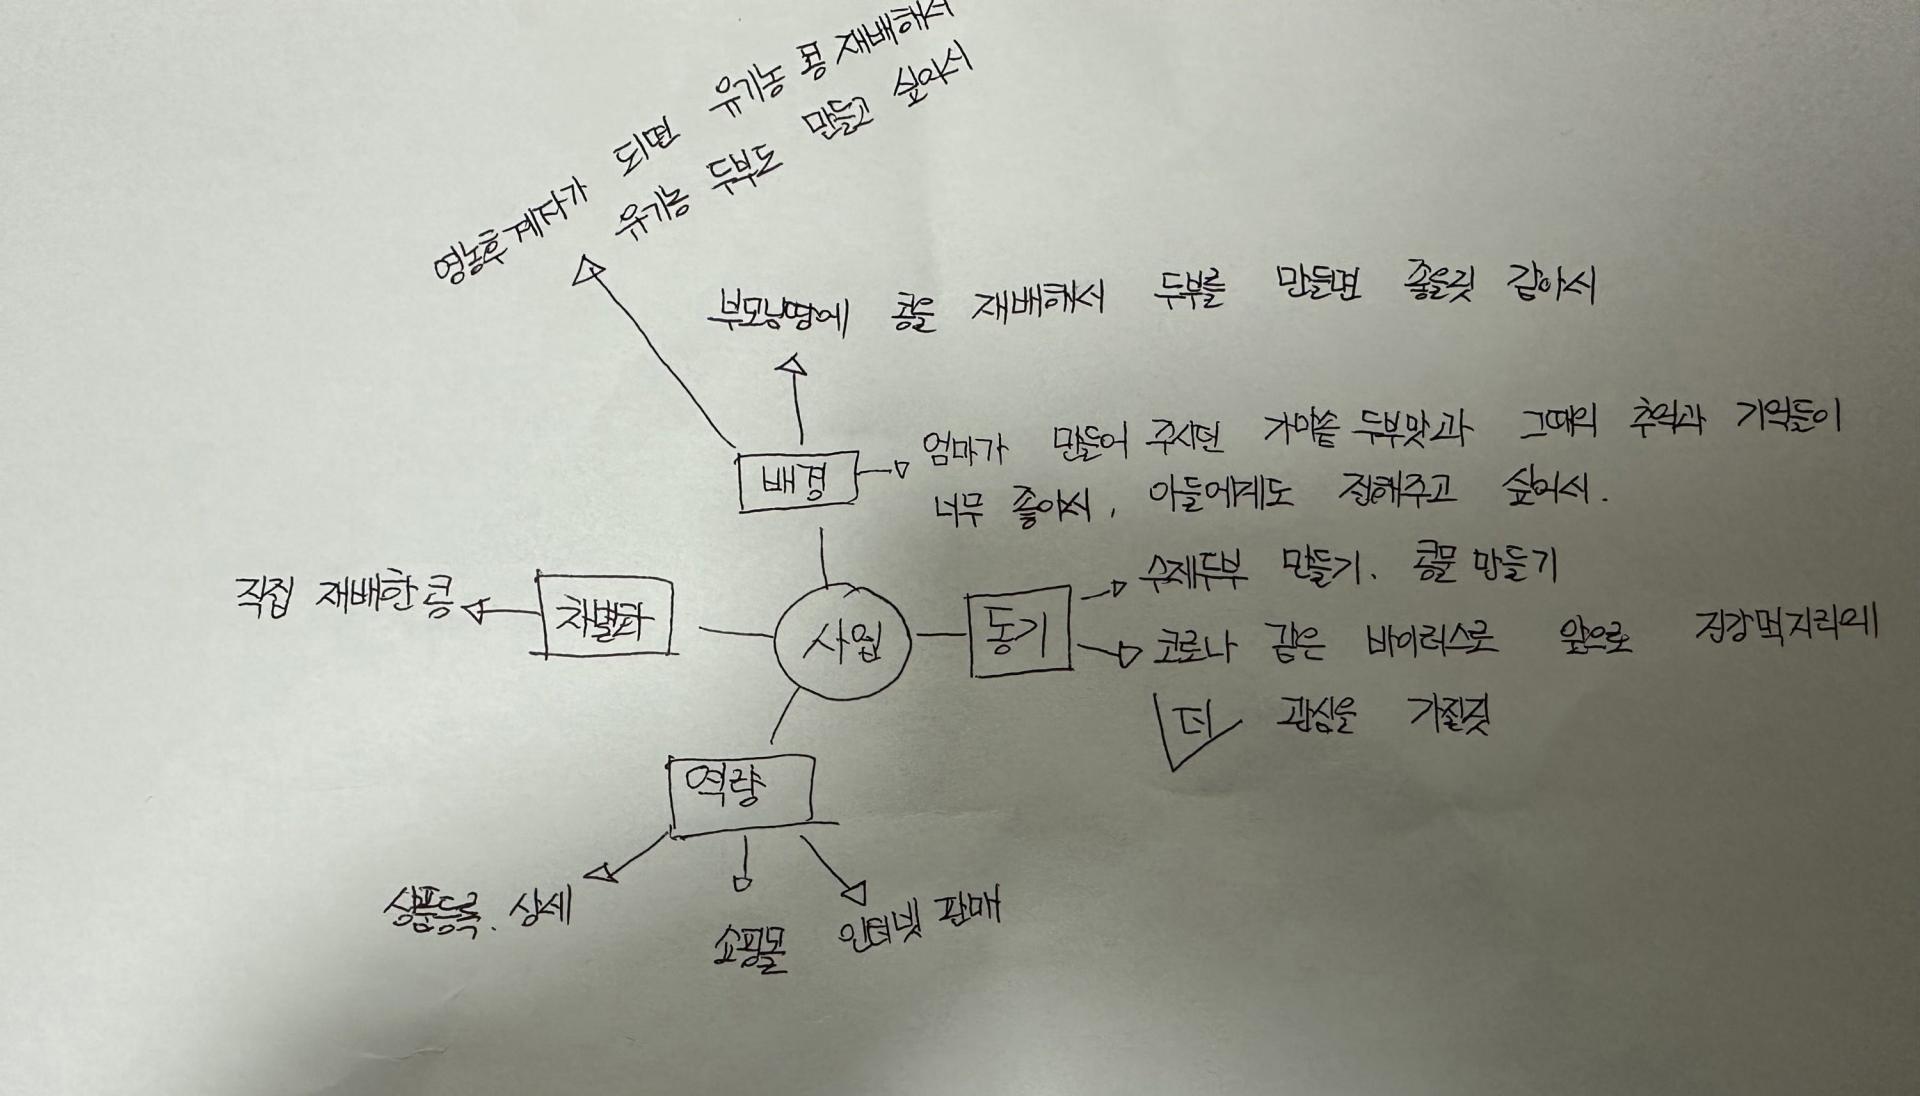 영농후계자가 되면 유기농 콩 재배해서
유기농 두부도 만들고 싶어서
부모님땅에 콩을 재배해서 두부를 만들면 좋을것 같아서
배경
엄마가 만들어 주시던 가마솥 두부맛과 그때의 추억과 기억들이
너무 좋아서, 아들에게도 전해주고 싶어서.
직접 재배한 콩
차별화
사업
동기
수제두부 만들기. 콩물 만들기
코로나 같은 바이러스로 앞으로 건강먹거리에
더 관심을 가질것
역량
상품등록. 상세
쇼핑몰
인터넷 판매